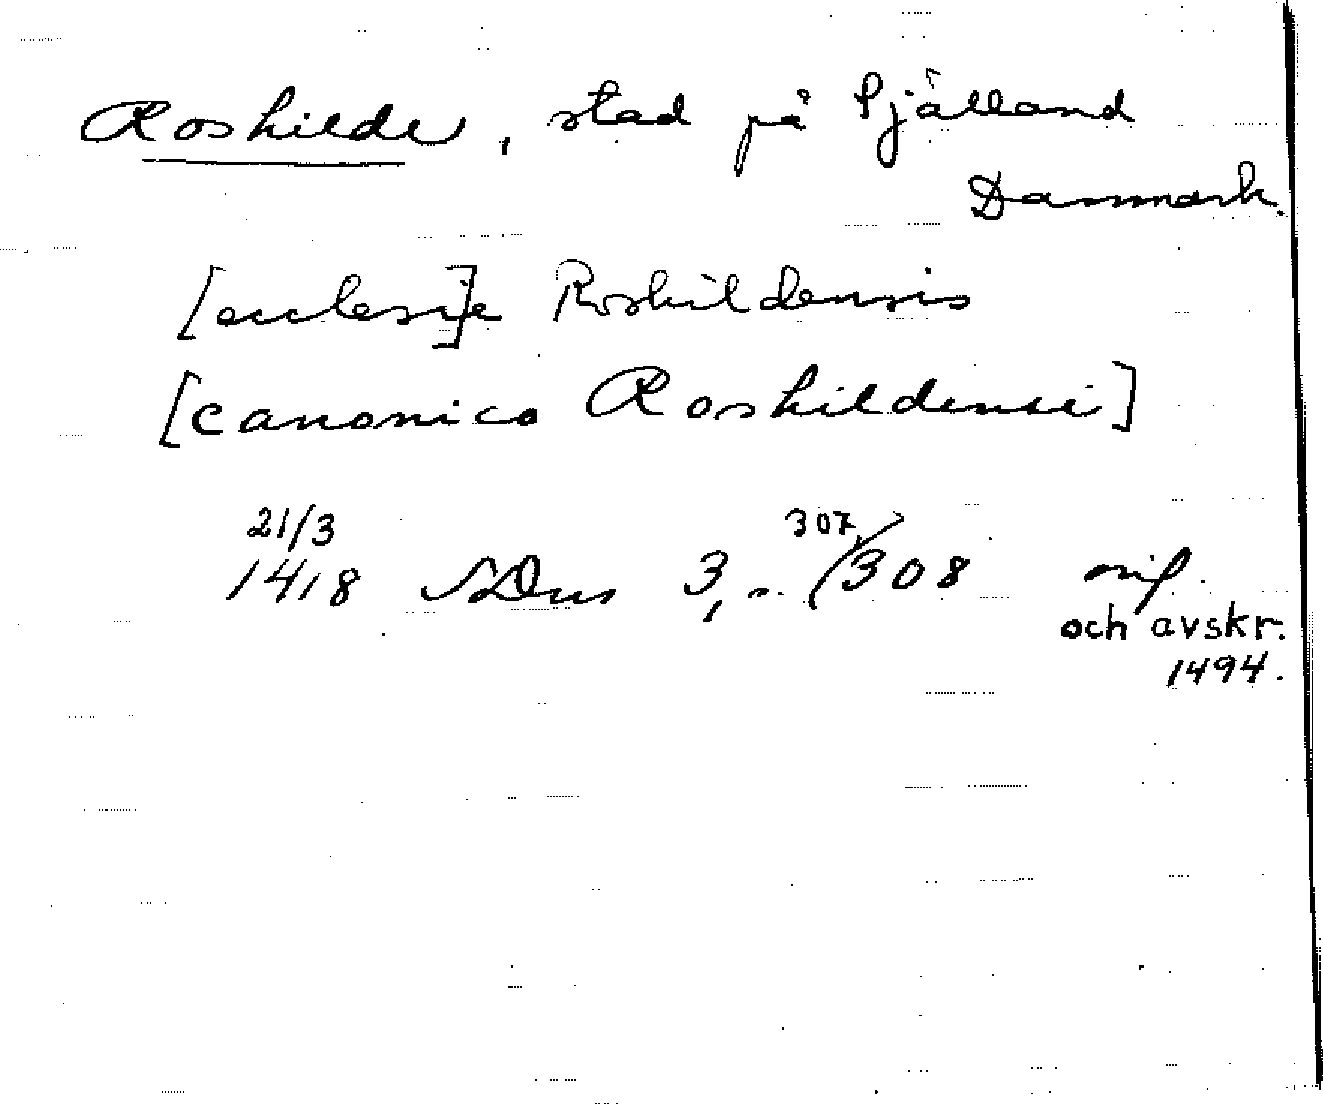 Roskilde, stad på Själland
Danmark.
[ecclesi]e Roskildensis
[canonico Roskildensi]
21/3 307
1418 SDns 3, s. 308 orig.
och avskr.
1494.